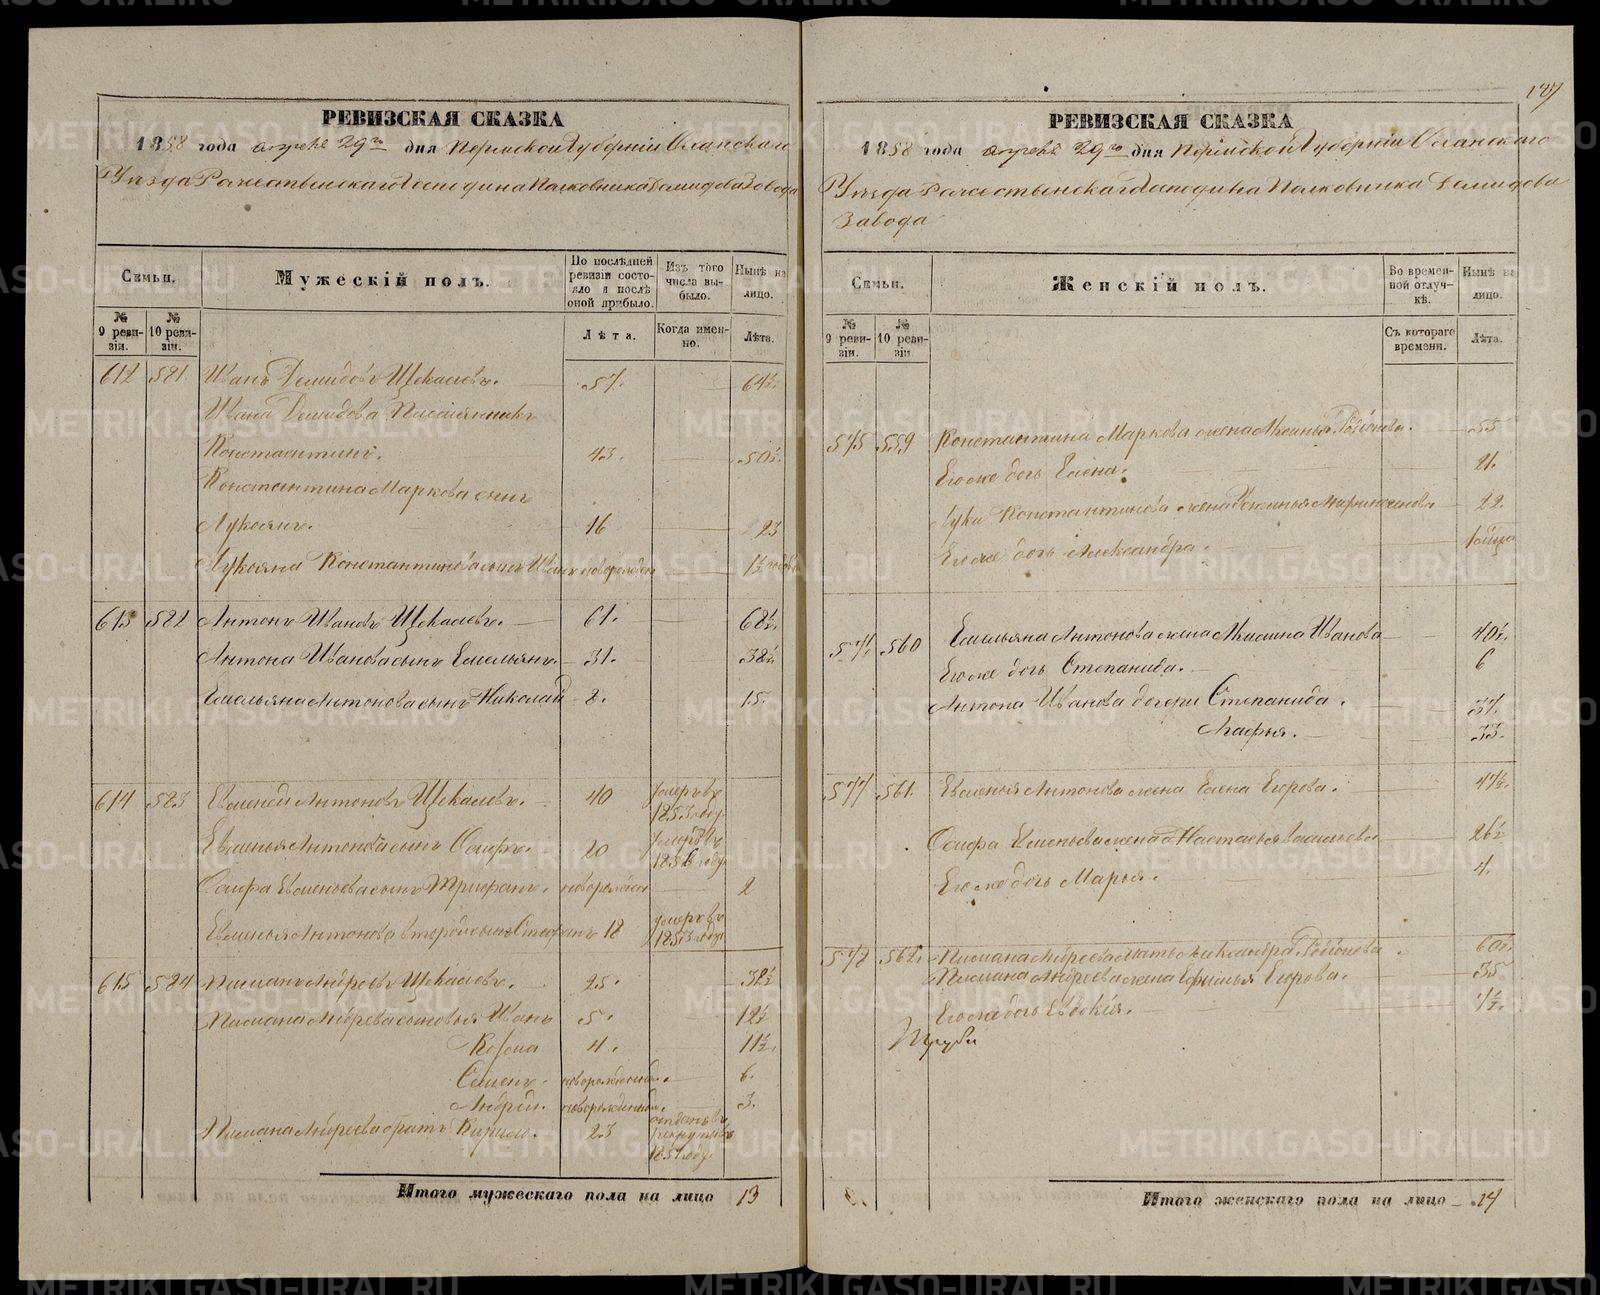 РЕВИЗСКАЯ СКАЗКА
1858 года апреля 29го дня Пермской Губерніи Оханскаго
Уезда Рожественскаго Господина Полковника Демидова Завода
Семьи.
Мужескій полъ.
По послѣдней ревизіи состояло и послѣ оной прибыло.
Изъ того числа выбыло.
Нынѣ на лицо.
№ 9 ревизіи.
№ 10 ревизіи.
Лѣта.
Когда именно.
Лѣта.
612 581 Иванъ Демидовъ Щекалевъ. 57. 64½.
Ивана Демидова Племянникъ
Константинъ. 43. 50½.
Константина Маркова сынъ
Лукоянъ. 16 23
Лукояна Константинова сынъ Иванъ новорожден 1½
613 582 Антонъ Ивановъ Щекалевъ. 61. 68½.
Антона Иванова сынъ Емельянъ. 31. 38½.
Емельяна Антонова сынъ Николай 8. 15.
614 583 Антоновъ Щекалевъ. 40 умеръ въ 1853 году
Антонова сынъ Осипъ. 20 умеръ въ 1856 году
Осипа сынъ Трифанъ. новорожден 2
Антонова второй сынъ Стефанъ 18 умеръ въ 1853 году
615 584 Пиманъ Андреевъ Щекалевъ. 25. 32½
Пимана Андреева сыновья Иванъ 5. 12½
Козма 4. 11½.
Семенъ. новорожденный. 6.
Андрей. новорожденный. 3.
Пимана Андреева братъ Кирилъ. 23 отданъ въ рекруты въ 1851 году
Итого мужескаго пола на лицо 13
РЕВИЗСКАЯ СКАЗКА
1858 года апреля 29го дня Пермской Губерніи Оханскаго
Уезда Рожественскаго Господина Полковника Демидова
Завода
Семьи.
Женскій полъ.
Во временной отлучкѣ.
Нынѣ на лицо.
№ 9 ревизіи.
№ 10 ревизіи
Съ котораго времени.
Лѣта.
575 559 Константина Маркова жена Аксинья Родіонова. 55
Его же дочь Елена. 21.
Луки Константинова жена 22.
Его же дочь Александра.
560 Емельяна Антонова жена Иванова 40½.
Его же дочь Степанида. 6
Антона Иванова дочери Степанида. 37.
Марья. 33.
577 561. Антонова жена Елена Егорова. 47½.
Осипа жена Настасья Васильева 26½
Его же дочь Марья. 4.
578 562. Пимана Андреева мать Александра Родіонова. 60½.
Пимана Андреева жена Ефимья Егорова. 35.
Его же дочь Евдокія. 7½.
Итого женскаго пола на лицо 14
METRIKI.GASO-URAL.RU